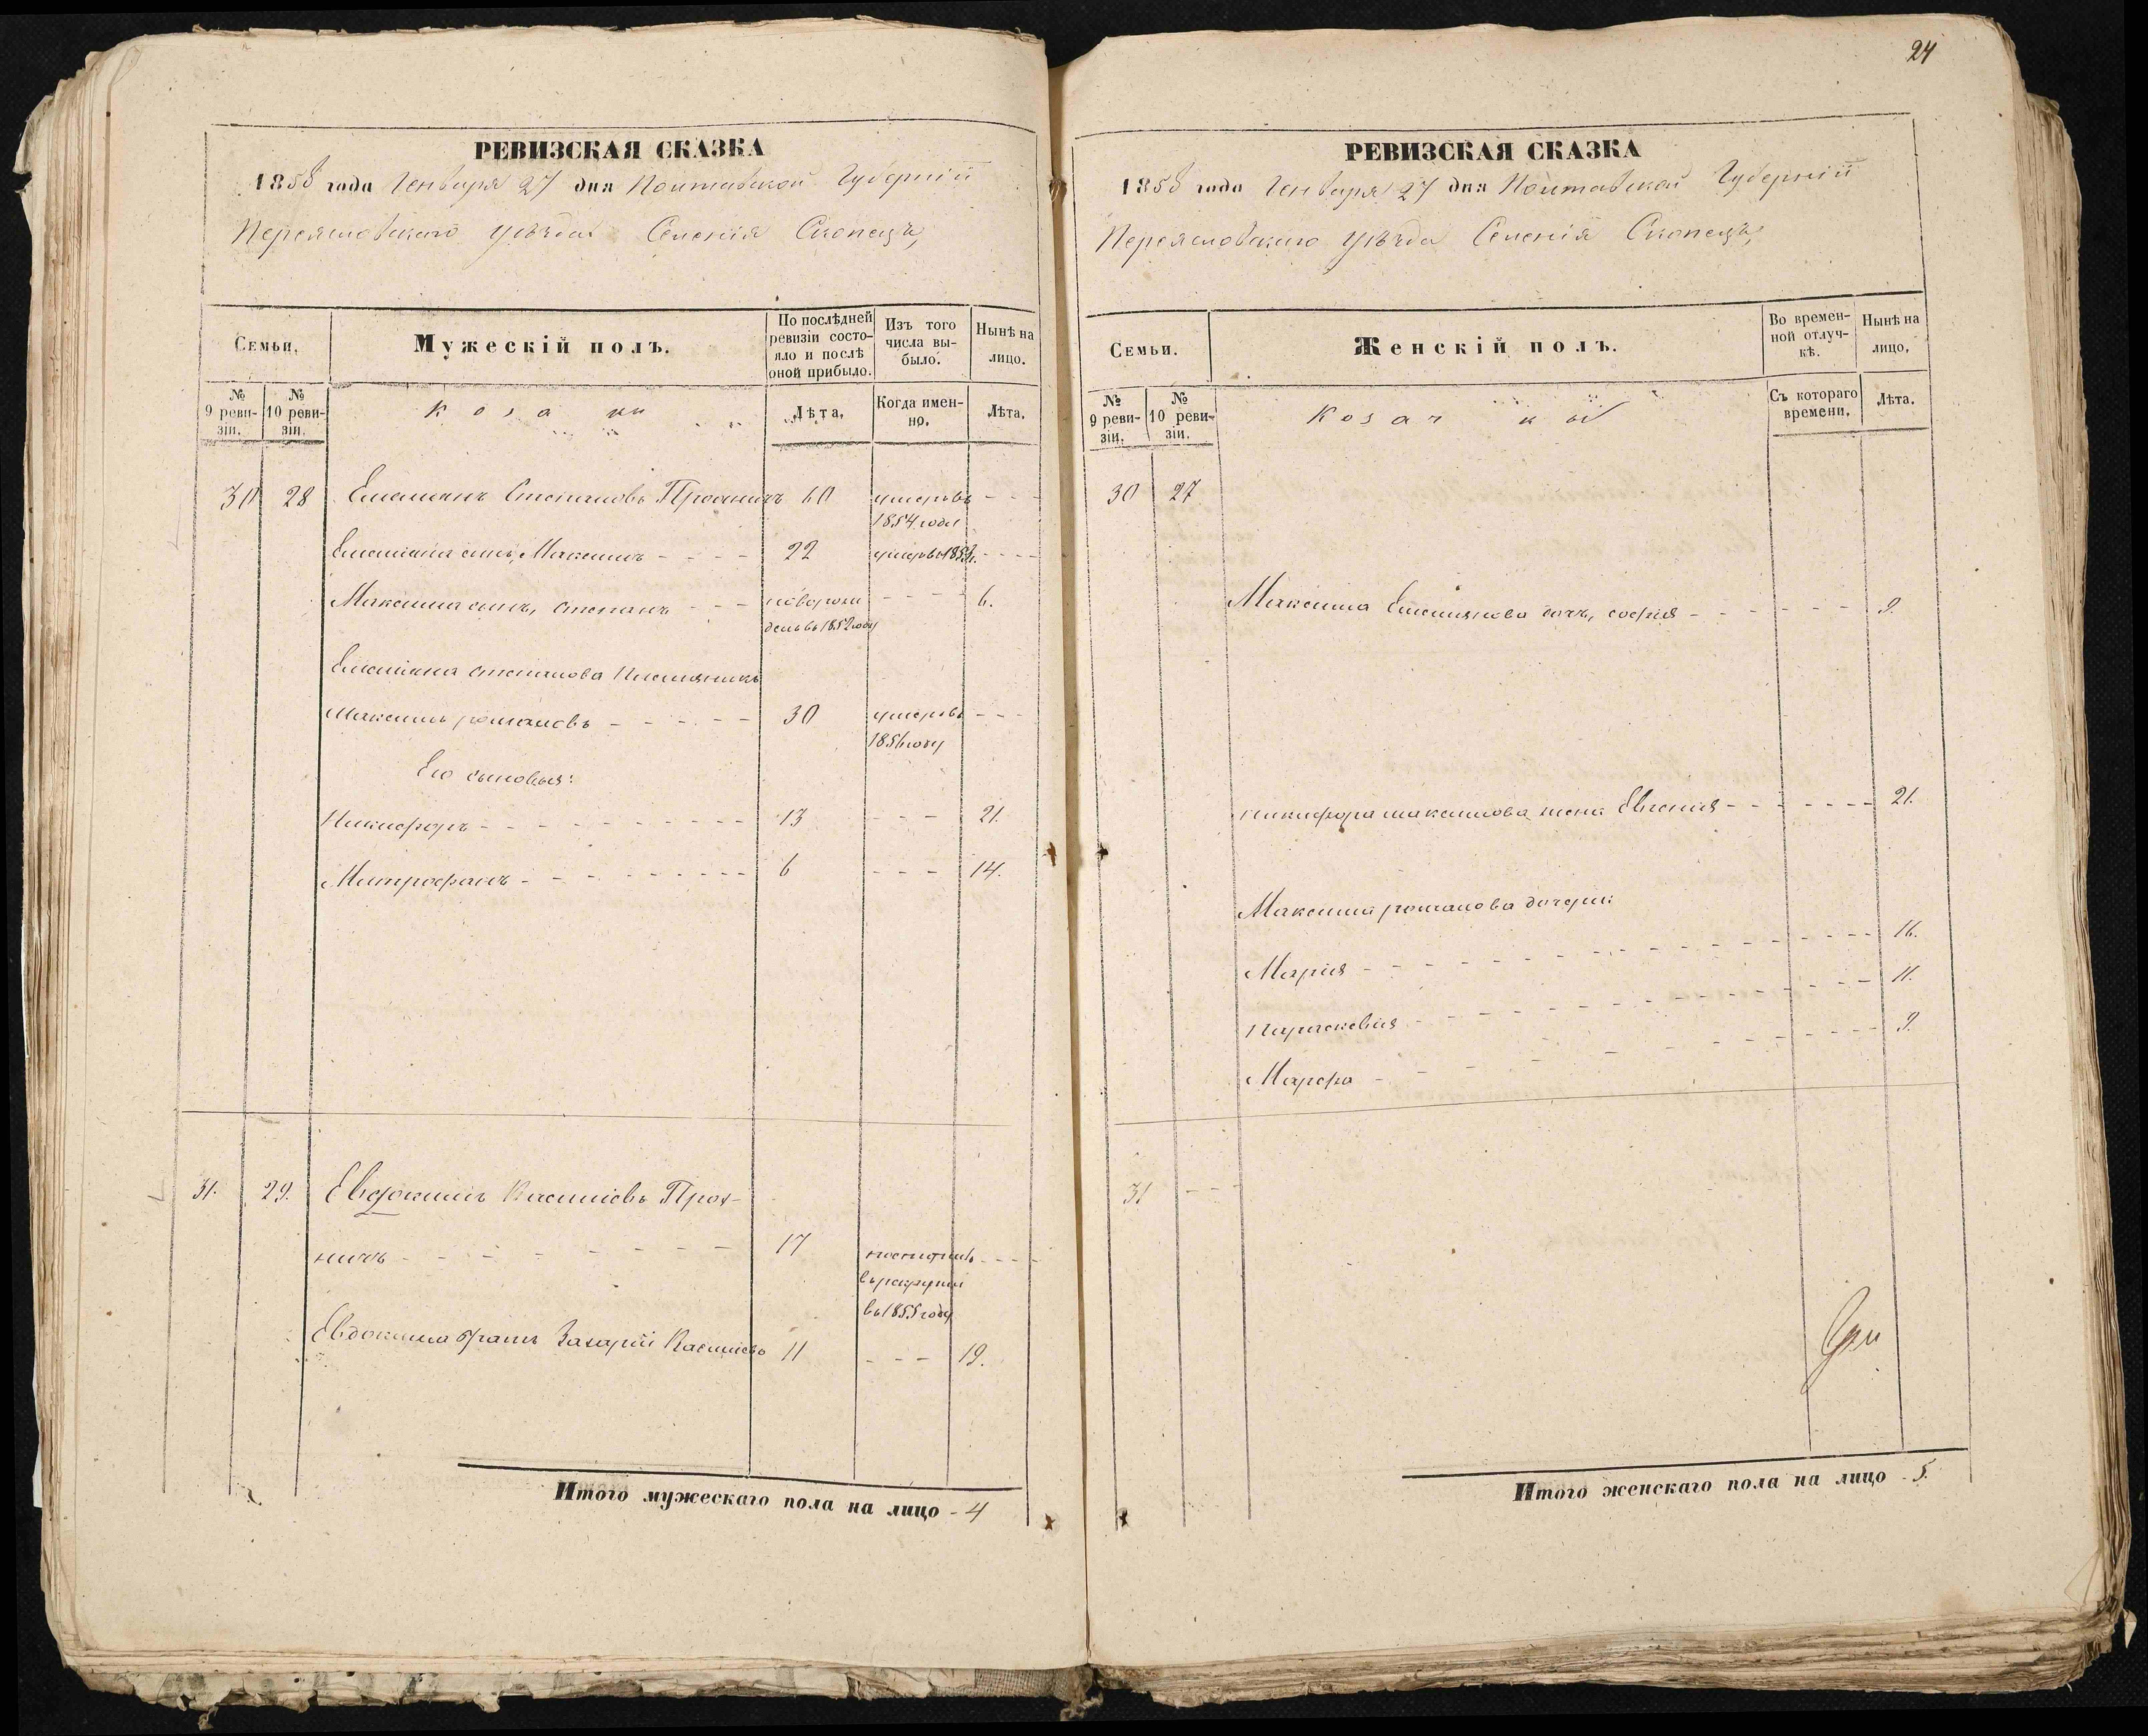 24
РЕВИЗСКАЯ СКАЗКА
1858 года Генваря 27 дня Полтавской Губерніи
Переяславскаго уѣзда Селенія Скопецъ,
Семьи.
Мужескій полъ.
По послѣдней ревизіи состояло и послѣ оной прибыло.
Изъ того числа выбыло.
Нынѣ на лицо.
№ 9 ревизіи.
№ 10 ревизіи.
Козаки
Лѣта.
Когда именно.
Лѣта.
30 28 Емельянъ Степановъ Прохничъ 60 умеръ въ - - -
1854 году
Емельяна сынъ, Максимъ - - - - 22 умеръ въ - - - -
Максима сынъ, Степанъ - - - новорожденъ въ 1852 году - - - - 6.
Емельяна Степанова племянникъ
Максимъ Романовъ - - - - - - 30 умеръ въ - - -
году
Его сыновья:
Никифоръ - - - - - - - - - 13 - - - 21.
Митрофанъ - - - - - - - - - 6 - - - 14.
31. 29. Евдокимъ Прох-
ничъ - - - - - - - - 17 поступилъ - - - -
въ рекруты
въ 1855 году
Евдокима братъ Захарій 11 - - - 19.
Итого мужескаго пола на лицо - 4
РЕВИЗСКАЯ СКАЗКА
1858 года Генваря 27 дня Полтавской Губерніи
Переяславскаго уѣзда Селенія Скопецъ,
Семьи.
Женскій полъ.
Во временной отлучкѣ.
Нынѣ на лицо.
№ 9 ревизіи.
№ 10 ревизіи.
Козачки
Съ котораго времени.
Лѣта.
30 27
Максима Емельянова дочь, Софія - - - - - - 9.
Никифора Максимова жена Евгенія - - - - - - - 21.
Максима Романова дочери:
Марія - - - - - - - - - - - - 16.
Параскевія - - - - - - - - - - - - 11.
Марфа - - - - - - - - - - - 9.
31 - - -
Итого женскаго пола на лицо - 5.